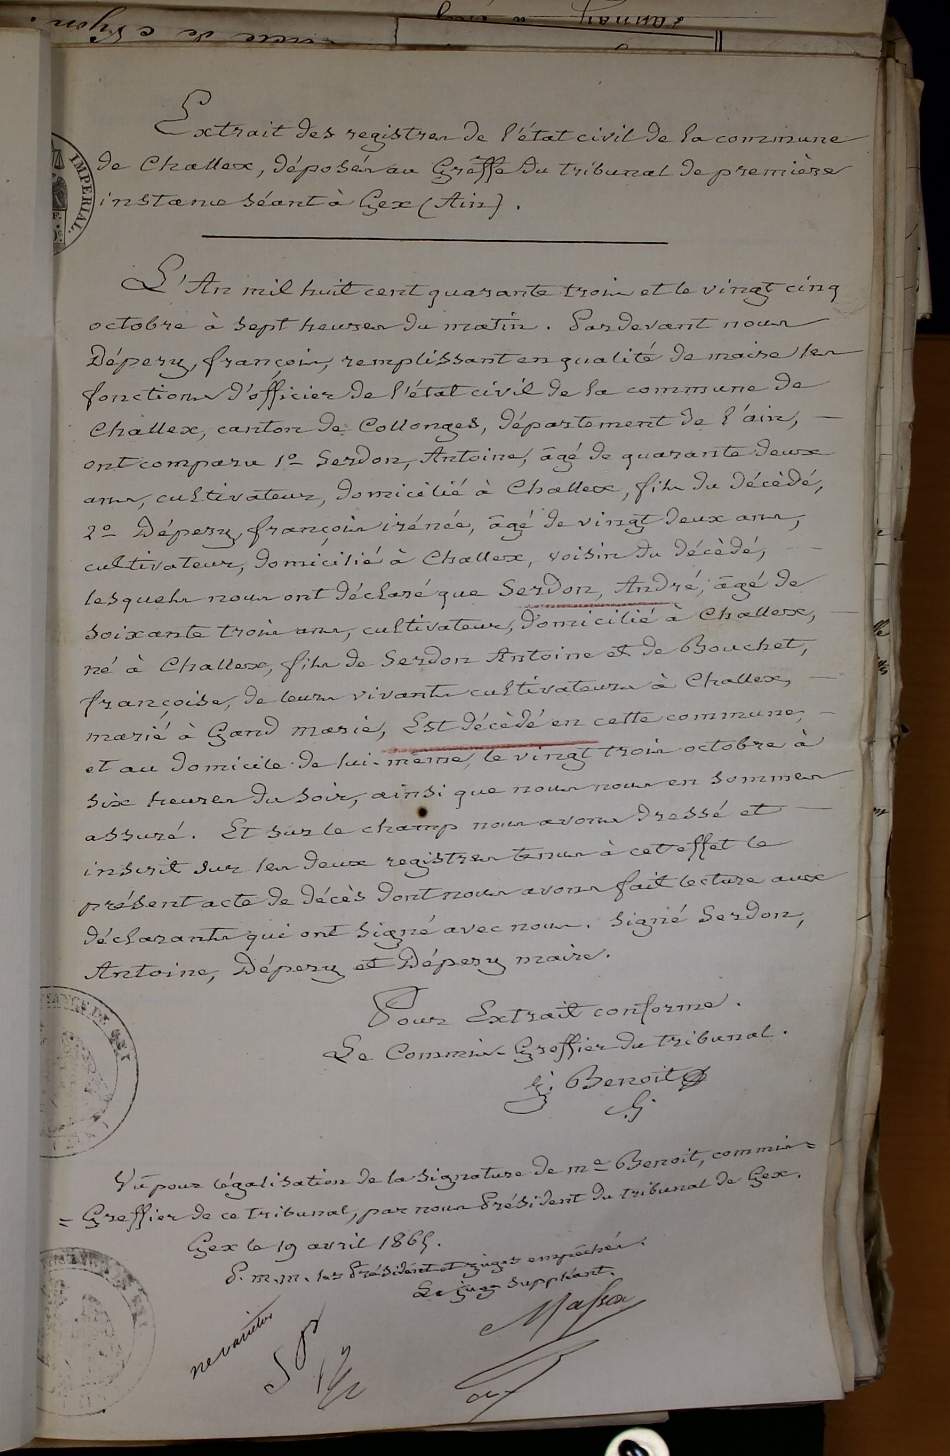 Extrait des registres de l'état civil de la commune
de Challex, déposés au Greffe du tribunal de première
instance séant à Gex (Ain).
IMPERIAL.
L'An mil huit cent quarante trois et le vingt cinq
octobre à sept heures du matin. Pardevant nous
Dépery, françois, remplissant en qualité de maire les
fonctions d'officier de l'état civil de la commune de
Challex, canton de Collonges, département de l'ain,
ont comparu 1º Serdon, Antoine, âgé de quarante deux
ans, cultivateur, domicilié à Challex, fils du décèdé,
2º Dépery, françois irénée, âgé de vingt deux ans,
cultivateur, domicilié à Challex, voisin du décèdé,
lesquels nous ont déclaré que Serdon, André, âgé de
soixante trois ans, cultivateur, domicilié à Challex,
né à Challex, fils de Serdon Antoine et de Bouchet,
françoise, de leurs vivants cultivateurs à Challex,
marié à Gand marie, Est décèdé en cette commune,
et au domicile de lui-même, le vingt trois octobre à
six heures du soir, ainsi que nous nous en sommes
assuré. Et sur le champ nous avons dressé et
inscrit sur les deux registres tenus à cet effet le
présent acte de décès dont nous avons fait lecture aux
déclarants qui ont signé avec nous. Signé Serdon,
Antoine, Dépery et Dépery maire.
Pour Extrait conforme.
Le Commis-Greffier du tribunal.
Benoit
Vu pour légalisation de la signature de me Benoit, commis=
=Greffier de ce tribunal, par nous Président du tribunal de Gex.
Gex le 19 avril 1865.
P. m.m. les Président et juges empêchés.
Le Juge Suppléant.
ne varietur